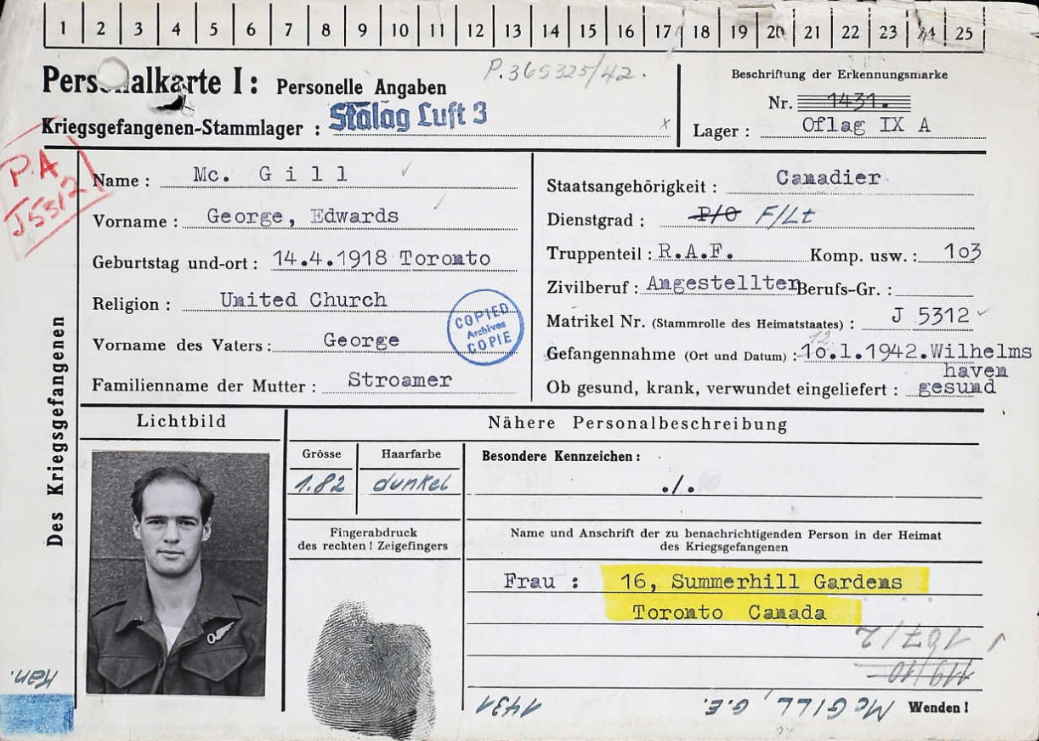 1 2 3 4 5 6 7 8 9 10 11 12 13 14 15 16 17 18 19 20 21 22 23 24 25
Personalkarte I: Personelle Angaben
P.365325/42.
Kriegsgefangenen-Stammlager : Stalag Luft 3
Beschriftung der Erkennungsmarke
Nr. 1431.
Lager : Oflag IX A
P.A
J5312
Des Kriegsgefangenen
Name : Mc. Gill
Vorname : George, Edwards
Geburtstag und-ort : 14.4.1918 Toronto
Religion : United Church
Vorname des Vaters : George
Familienname der Mutter : Stroamer
COPIED
Archives
COPIE
Staatsangehörigkeit : Canadier
Dienstgrad : P/O F/Lt
Truppenteil : R.A.F. Komp. usw. : 103
Zivilberuf : Angestellter Berufs-Gr. :
Matrikel Nr. (Stammrolle des Heimatstaates) : J 5312
12.
Gefangennahme (Ort und Datum) : 10.1.1942. Wilhelms
haven
Ob gesund, krank, verwundet eingeliefert : gesund
Lichtbild
Nähere Personalbeschreibung
Grösse
1.82
Haarfarbe
dunkel
Besondere Kennzeichen :
./.
Fingerabdruck
des rechten ! Zeigefingers
Name und Anschrift der zu benachrichtigenden Person in der Heimat
des Kriegsgefangenen
Frau : 16, Summerhill Gardens
Toronto Canada
167/2
119/10
McGILL, G.E. 1431
Wenden !
Kan.